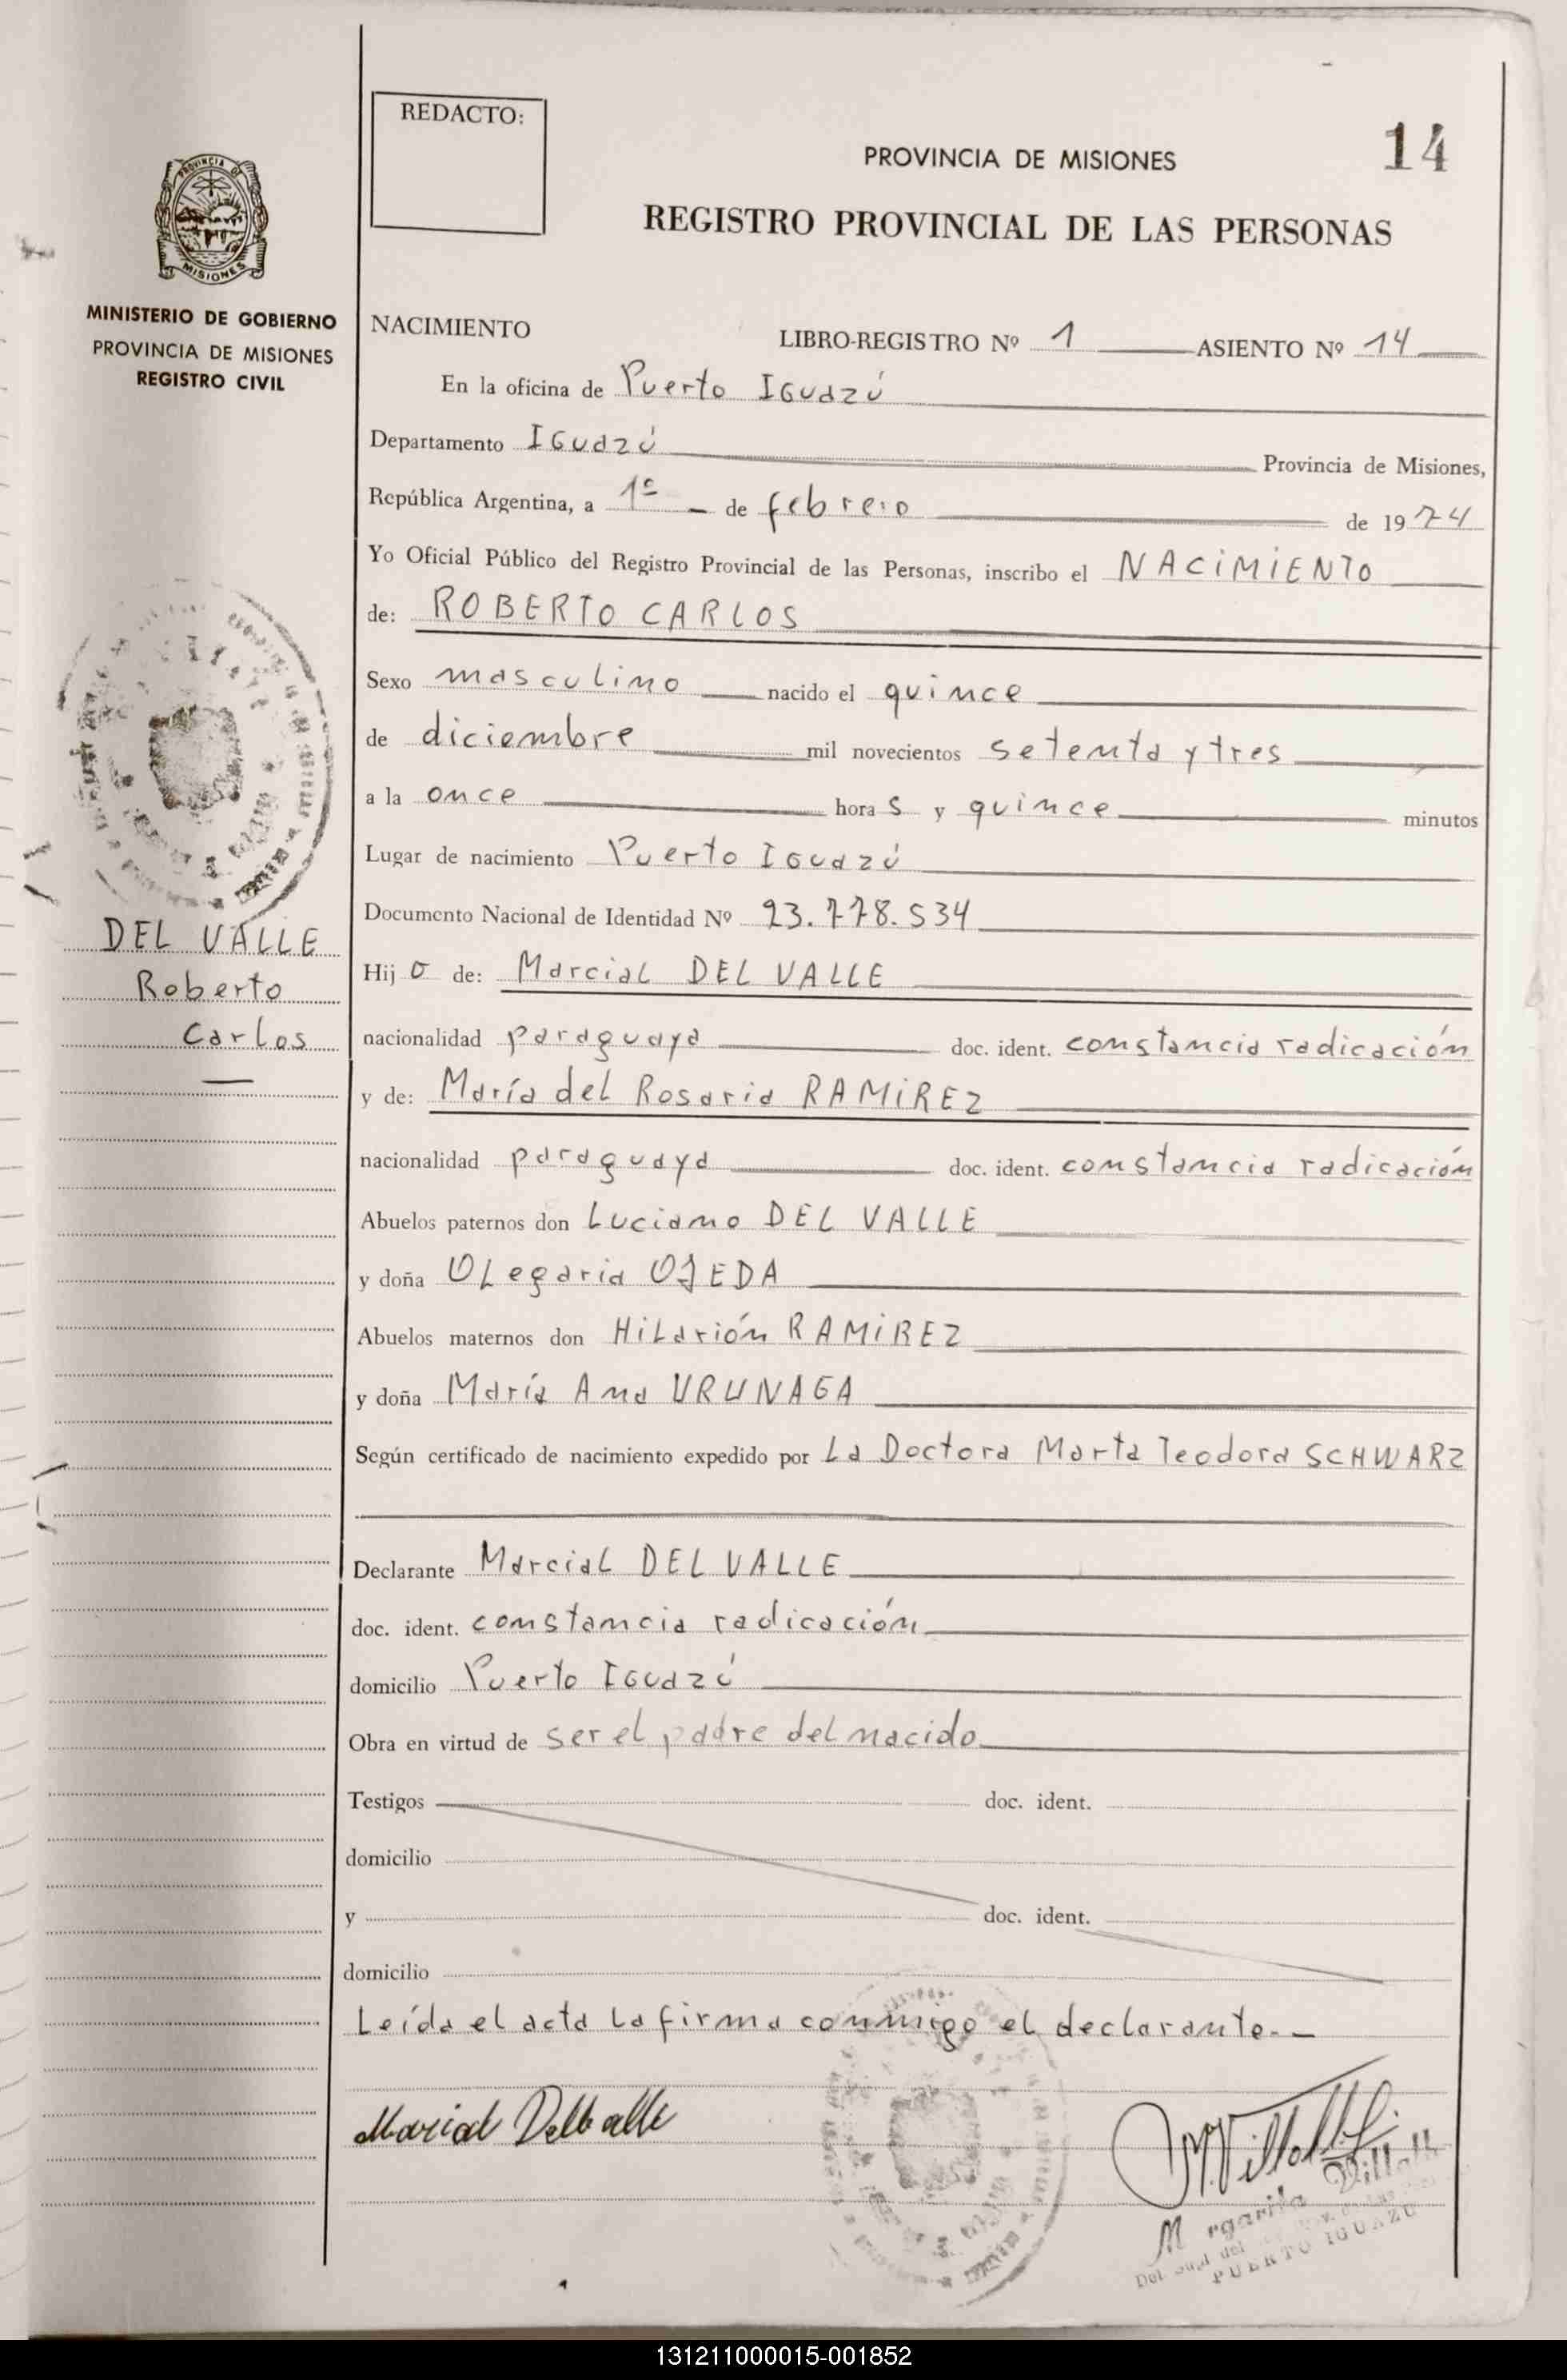 REDACTO:
PROVINCIA DE MISIONES
14
REGISTRO PROVINCIAL DE LAS PERSONAS
PROVINCIA D
MISIONES
MINISTERIO DE GOBIERNO
PROVINCIA DE MISIONES
REGISTRO CIVIL
NACIMIENTO LIBRO-REGISTRO Nº 1 ASIENTO Nº 14
En la oficina de Puerto IGuazú
Departamento IGuazú Provincia de Misiones,
República Argentina, a 1º de febrero de 1974
Yo Oficial Público del Registro Provincial de las Personas, inscribo el NACIMIENTO
de: ROBERTO CARLOS
Sexo masculino nacido el quince
de diciembre mil novecientos setenta y tres
a la once hora s y quince minutos
Lugar de nacimiento Puerto IGuazú
Documento Nacional de Identidad Nº 23.778.534
DEL VALLE
Roberto
Carlos
Hij o de: Marcial DEL VALLE
nacionalidad paraguaya doc. ident. constancia radicación
y de: María del Rosario RAMIREZ
nacionalidad paraguaya doc. ident. constancia radicación
Abuelos paternos don Luciano DEL VALLE
y doña Olegaria OJEDA
Abuelos maternos don Hilarión RAMIREZ
y doña María Ana URUNAGA
Según certificado de nacimiento expedido por La Doctora Marta Teodora SCHWARZ
Declarante Marcial DEL VALLE
doc. ident. constancia radicación
domicilio Puerto IGuazú
Obra en virtud de ser el padre del nacido
Testigos doc. ident.
domicilio
y doc. ident.
domicilio
Leída el acta la firma conmigo el declarante.-
Marcial Delballe
PUERTO IGUAZU
131211000015-001852